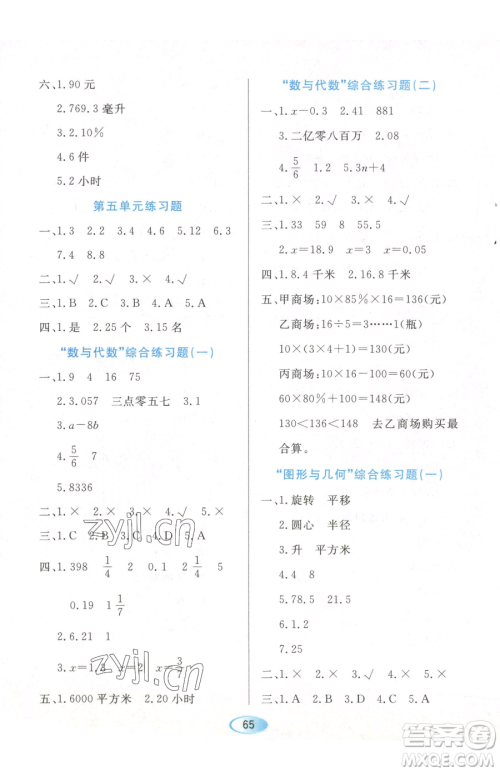 六、1.90元
2.769.3毫升
3.2.10%
4.6件
5.2小时
第五单元练习题
一、1.3 2.2 3.4 4.6 5.12 6.3
7.4 8.8
二、1.√ 2.√ 3.× 4.×
三、1.B 2.C 3.A 4.B 5.A
四、1.是 2.25个 3.15名
“数与代数”综合练习题(一)
一、1.9 4 16 75
2.3.057 三点零五七 3.1
3.a-8b
4.5/6 6 7
5.8336
二、1.× 2.× 3.× 4.√ 5.×
三、1.C 2.B 3.C 4.D 5.A
四、1.398 1/4 2 0.1 2 1/4
0.19 1 1/7
2.6.21
3.x=1.3 x=2 x=3/7
五、1.6000平方米 2.20小时
“数与代数”综合练习题(二)
一、1.x-0.3 2.41 881
3.二亿零八百万 2.08
4.5/6 5.3n+4
二、1.× 2.√ 3.× 4.√
三、1.33 59 8 55.5
2.x=18.9 x=3 x=0.05
四、1.8.4千米 2.16.8千米
五、甲商场:10×85%×16=136(元)
乙商场:16÷5=3……1(件)
10×(3×4+1)=130(元)
丙商场:10×16=160(元)
60×80%+100=148(元)
130<136<148 去乙商场购买最
合算。
“图形与几何”综合练习题(一)
一、1.旋转 平移
2.圆心 半径
3.升 平方米
4.5
5.78.5 21.5
6.1.2
7.25
二、1.× 2.× 3.√ 4.×
三、1.D 2.A 3.B 4.C 5.A
65
zyjl.cn
zyjl.cn
答案圈
MXQE.COM